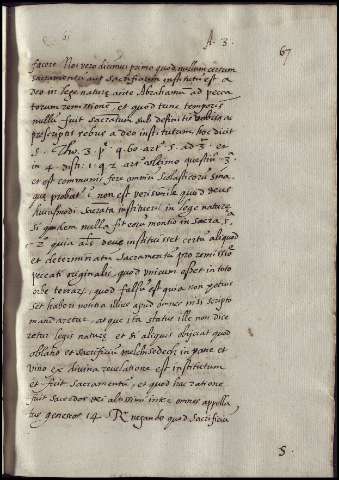 A. 3.
67
facere. Nos vero dicimus primo quod nullum certum
sacramentum aut sacrificium institutum est a
deo in lege naturę ante Abrahamum ad pecca
torum remissionem, et quod tunc temporis
nullum fuit sacratum sub definitis
prescriptis rebus a deo institutum hoc dicit
S. Tho. 3. p. q. 60. art. 5. ad 3. et
in 4 dist. 1. q. 2 art. ultimo questiu. 3
et est communis fere omnium scolasticorum
que probatur i. non est verisimile quod deus
huiusmodi sacrata institueret in lege naturę
siquidem nulla fit eorum mentio in sacra
2 quia als deus instituisset certum aliquod
et determinatum sacramentum pro remissione
peccati originalis, quod unicum esset in toto
orbe terrarum, quod falsum est quia non potuis
set haberi notitia illius apud omnes nisi scripto
mandaretur, atque ita status ille non dice
retur legis naturę et si aliquis obijciat quod
oblatio et sacrificium melchisedech in pane et
vino ex divina revelatione est institutum
et fuit sacramentum, et quod hac ratione
fuit sacerdos dei altissimi inter omnes appella
tus geneseos 14. R. negando quod sacrificium
S.